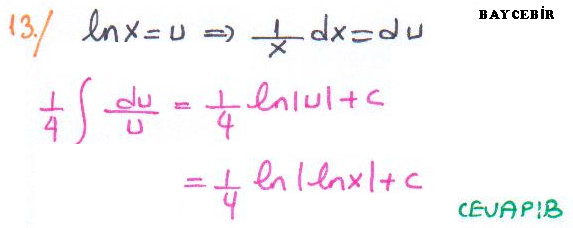 13./ lnx=u ⇒ 1/x dx=du BAYCEBİR
1/4 ∫ du/u = 1/4 ln|u|+c
= 1/4 ln|lnx|+c
CEVAP:B